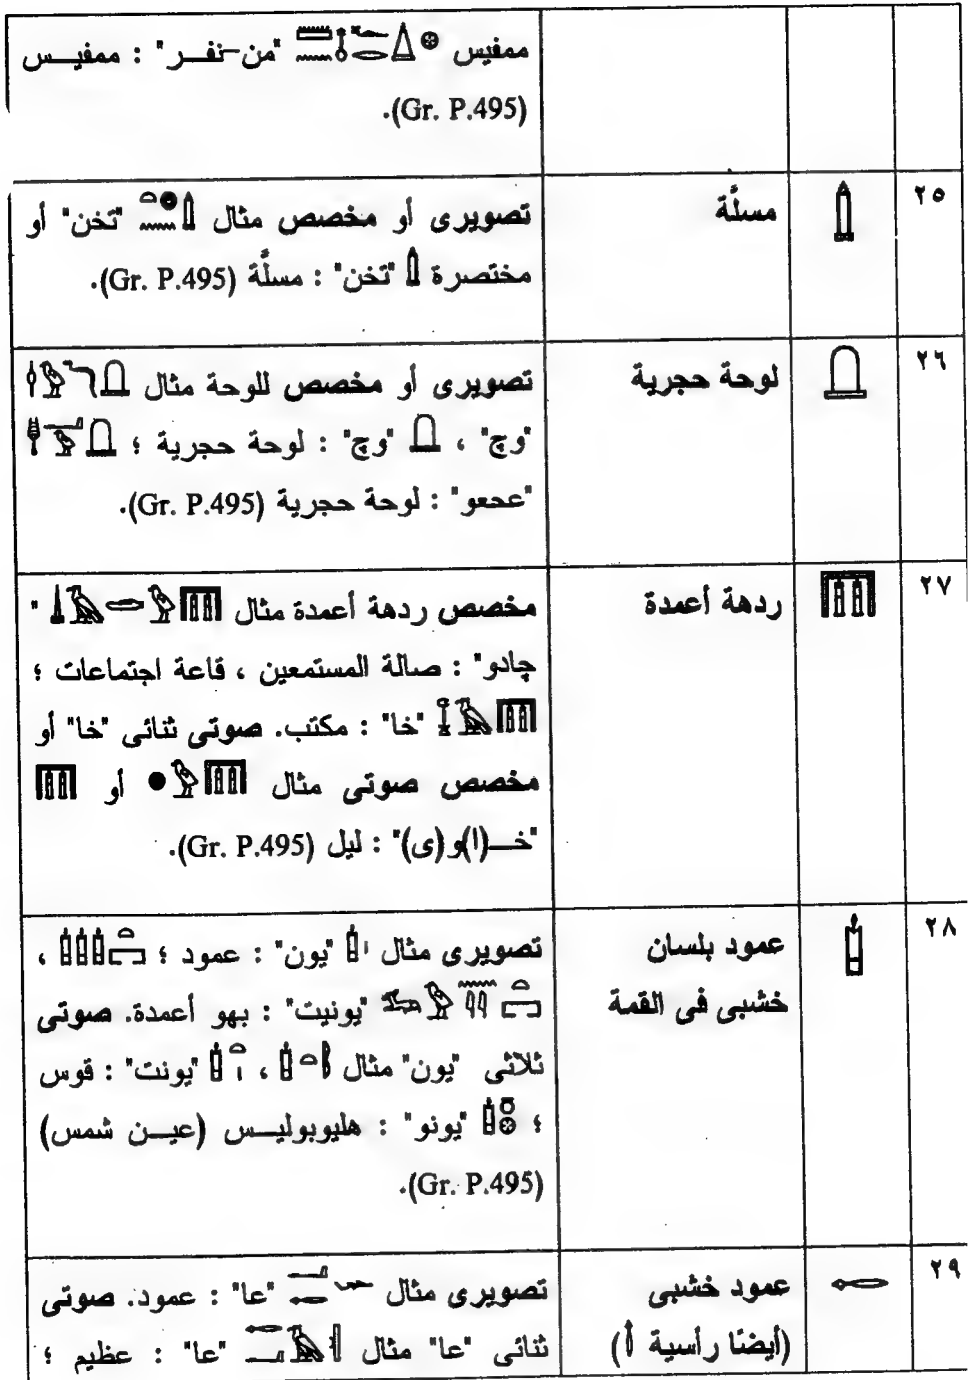 ممفيس "من-نفـر" : ممفيـس
(Gr. P.495).
٢٥ مسلَّة تصويرى أو مخصص مثال "تخن" أو
مختصرة "تخن" : مسلَّة (Gr. P.495).
٢٦ لوحة حجرية تصويرى أو مخصص للوحة مثال
"وچ" ، "وچ" : لوحة حجرية ؛
"عحعو" : لوحة حجرية (Gr. P.495).
٢٧ ردهة أعمدة مخصص ردهة أعمدة مثال "
چادو" : صالة المستمعين ، قاعة اجتماعات ؛
"خا" : مكتب. صوتى ثنائى "خا" أو
مخصص صوتى مثال أو
"خـ(ا)و(ى)" : ليل (Gr. P.495).
٢٨ عمود بلسان تصويرى مثال "يون" : عمود ؛ ،
خشبى فى القمة "يونيت" : بهو أعمدة. صوتى
ثلاثى "يون" مثال ، "يونت" : قوس
؛ "يونو" : هليوبوليـس (عيـن شمس)
(Gr. P.495).
٢٩ عمود خشبى تصويرى مثال "عا" : عمود. صوتى
(أيضًا رأسية ) ثنائى "عا" مثال "عا" : عظيم ؛